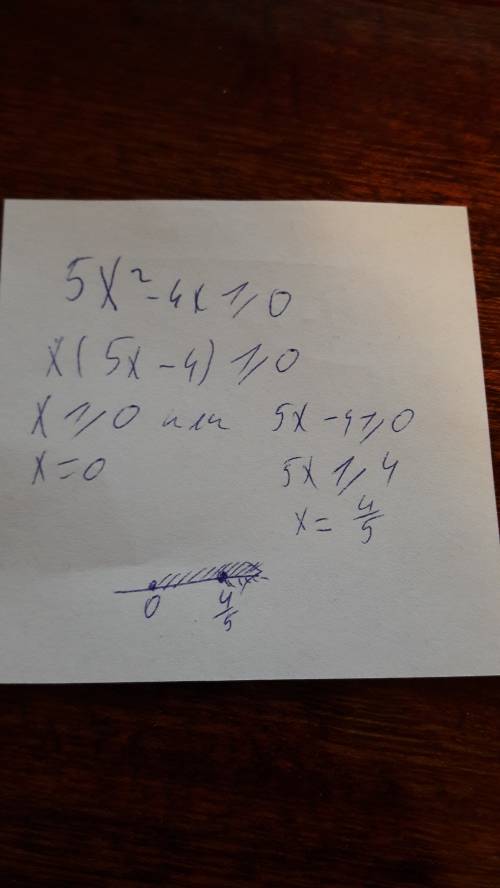 5x² - 4x ≥ 0
x(5x - 4) ≥ 0
x ≥ 0 или 5x - 4 ≥ 0
x = 0 5x ≥ 4
x = 4/5
0 4/5 x